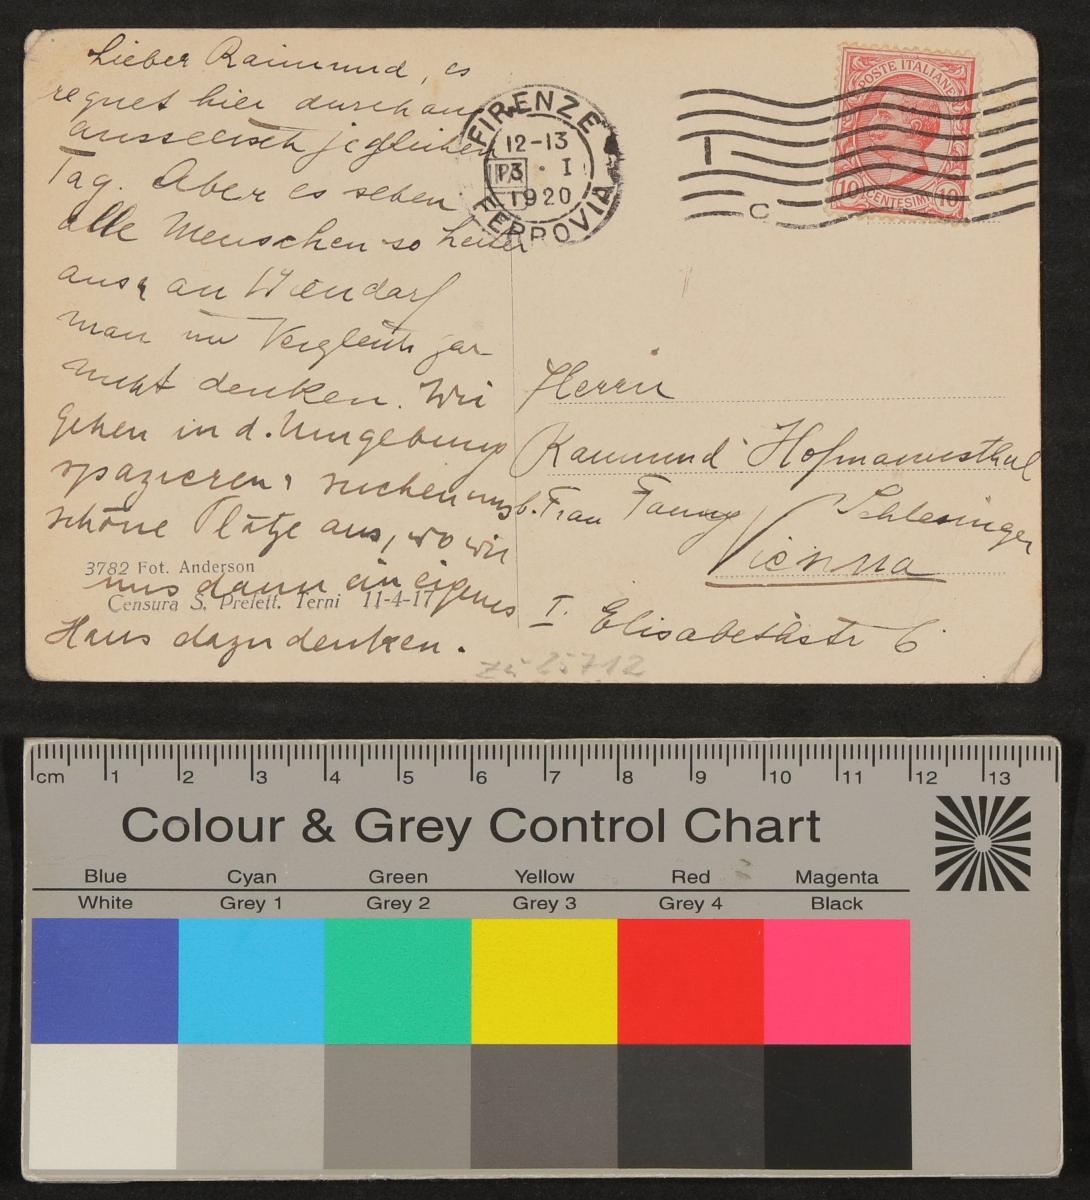 Lieber Raimund, es
regnet hier durchaus
jeglichen
Tag. Aber es sehen
alle Menschen so heiter
aus, an Wien darf
man im Vergleich gar
nicht denken. Wir
gehen in d. Umgebung
spazieren, suchen uns
schöne Plätze aus, wo wir
uns dann ein eigenes
Haus dazudenken.
3782 Fot. Anderson
Censura S. Prefett. Terni 11-4-17
FIRENZE
12-13
P3 · I
1920
FERROVIA
I
C
POSTE ITALIANE
10 CENTESIMI 10
Herrn
Raimund Hofmannsthal
b. Frau Fanny Schlesinger
Vienna
I. Elisabethstr 6
zu 25712
cm 1 2 3 4 5 6 7 8 9 10 11 12 13
Colour & Grey Control Chart
Blue Cyan Green Yellow Red Magenta
White Grey 1 Grey 2 Grey 3 Grey 4 Black